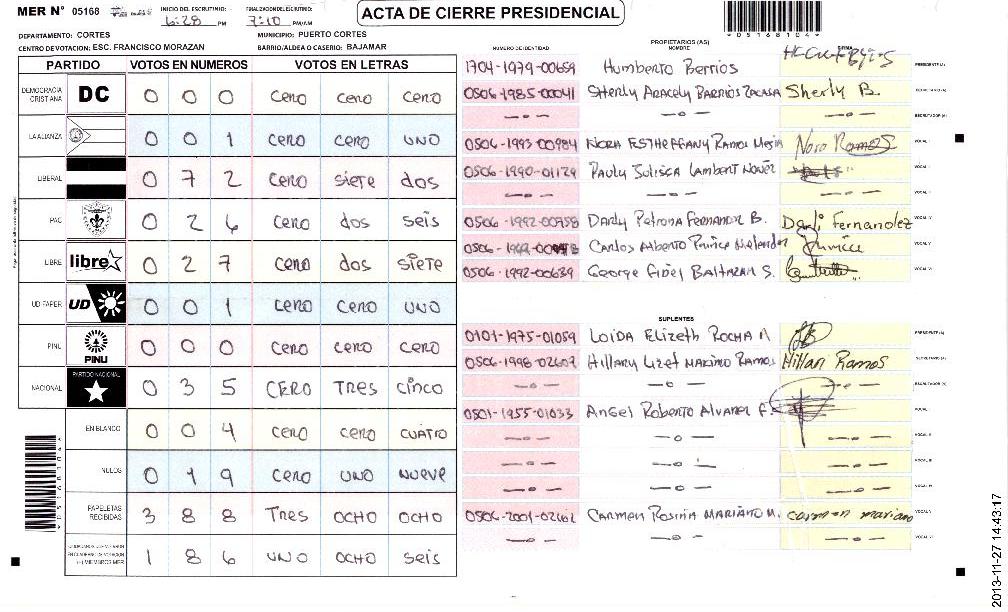 MER N° 05168
INICIO DEL ESCRUTINIO: 6:28 PM
FINALIZACION DEL ESCRUTINIO: 7:10 PM/AM
ACTA DE CIERRE PRESIDENCIAL
05168104
DEPARTAMENTO: CORTES
MUNICIPIO: PUERTO CORTES
CENTRO DE VOTACION: ESC. FRANCISCO MORAZAN
BARRIO/ALDEA O CASERIO: BAJAMAR
PARTIDO VOTOS EN NUMEROS VOTOS EN LETRAS
DEMOCRACIA CRISTIANA DC 0 0 0 CERO CERO CERO
LA ALIANZA 0 0 1 CERO CERO UNO
LIBERAL 0 7 2 CERO SIETE DOS
PAC 0 2 6 CERO DOS SEIS
LIBRE libre 0 2 7 CERO DOS SIETE
UD FAPER UD 0 0 1 CERO CERO UNO
PINU PINU 0 0 0 CERO CERO CERO
NACIONAL PARTIDO NACIONAL 0 3 5 CERO TRES CINCO
EN BLANCO 0 0 4 CERO CERO CUATRO
NULOS 0 1 9 CERO UNO NUEVE
PAPELETAS RECIBIDAS 3 8 8 TRES OCHO OCHO
1 8 6 UNO OCHO SEIS
NUMERO DE IDENTIDAD
PROPIETARIOS (AS)
NOMBRE
FIRMA
1704-1979-00659 Humberto Berrios PRESIDENTE (A)
0506-1985-00041 Sherly Aracely Barrios Zacasa Sherly B. SECRETARIO (A)
— 0 — — 0 — — 0 — ESCRUTADOR (A)
0506-1993-00984 Nora Estheffany Ramos Mejia Nora Ramos VOCAL I
0506-1990-01129 Pauly Julisca Lambert Nuñez VOCAL II
— 0 — — 0 — — 0 — VOCAL III
0506-1992-00958 Darly Petrona Fernandez B. Darli Fernandez VOCAL IV
Carlos Alberto VOCAL V
0506-1992-00639 George Fidel Baltazar S. VOCAL VI
SUPLENTES
0101-1975-01059 Loida Elizeth Rocha M PRESIDENTE (A)
0506-1998-02607 Hillary Lizet Maximo Ramos Hillari Ramos SECRETARIO (A)
— 0 — — 0 — — 0 — ESCRUTADOR (A)
0501-1955-01033 Angel Roberto Alvarez F. VOCAL I
— 0 — — 0 — — 0 — VOCAL II
— 0 — — 0 — — 0 — VOCAL III
— 0 — — 0 — — 0 — VOCAL IV
Carmen Rosina Mariano M. carmen mariano VOCAL V
— 0 — — 0 — — 0 — VOCAL VI
2013-11-27 14:43:17